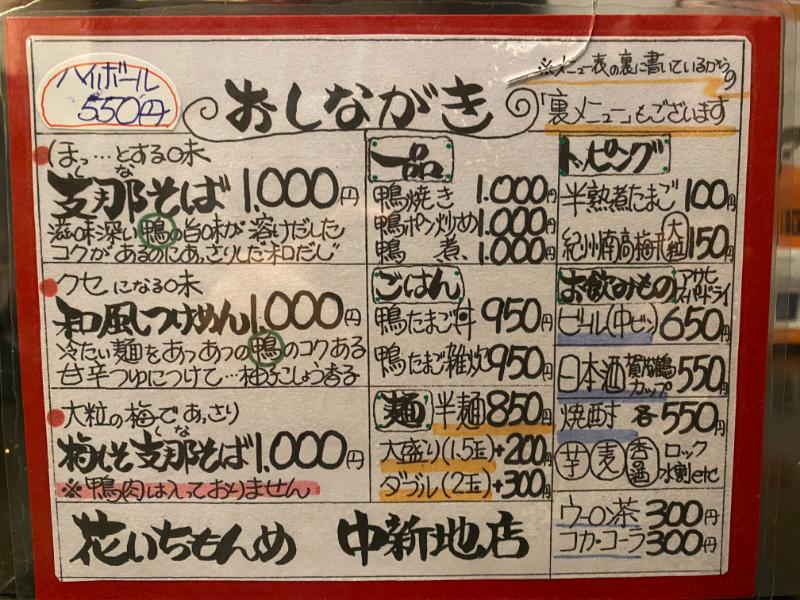 ハイボール
550円
おしながき
※メニュー表の裏に書いているからの
「裏メニュー」もございます
ほっ…とする味
しな
支那そば 1,000円
滋味深い鴨の旨味が溶けだした
コクがあるのにあっさりした和だし
クセになる味
和風つけめん 1,000円
冷たい麺をあっつあつの鴨のコクある
甘辛つゆにつけて…柚子こしょう香る
大粒の梅であっさり
しな
梅しそ支那そば 1,000円
※鴨肉は入っておりません
一品
鴨焼き 1.000円
鴨ポン炒め 1.000円
鴨煮、1.000円
ごはん
鴨たまご丼 950円
鴨たまご雑炊 950円
麺 半麺 850円
大盛り(1.5玉)+200円
ダブル(2玉)+300円
トッピング
半熟煮たまご 100円
紀州南高梅干 大粒 150円
お飲みもの アサヒスーパードライ
ビール(中ビン) 650円
日本酒 賀茂鶴カップ 550円
焼酎 各550円
芋 麦 ロック
水割etc
ウーロン茶 300円
コカ・コーラ 300円
花いちもんめ 中新地店